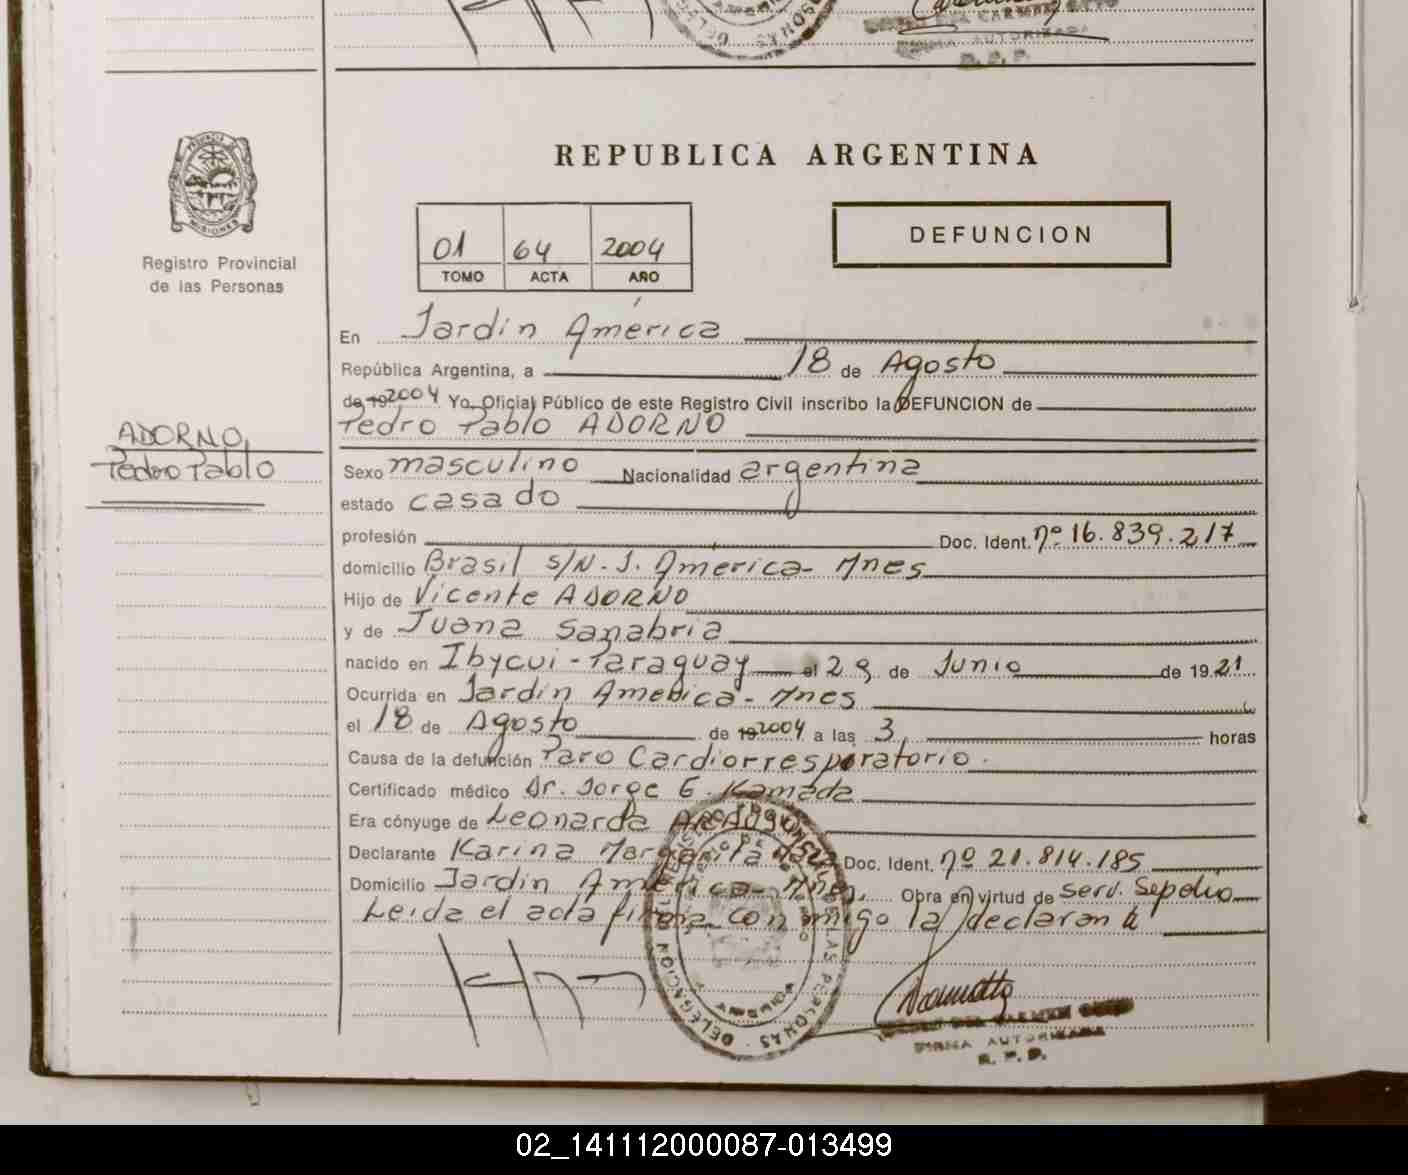 FIRMA AUTORIZADA
R. P. P.
PROVINCIA DE
MISIONES
Registro Provincial
de las Personas
REPUBLICA ARGENTINA
01 64 2004
TOMO ACTA AÑO
DEFUNCION
En Jardín América
República Argentina, a 18 de Agosto
de 19 2004 Yo, Oficial Público de este Registro Civil inscribo la DEFUNCION de
Pedro Pablo ADORNO
ADORNO,
Pedro Pablo
Sexo masculino Nacionalidad argentina
estado casado
profesión Doc. Ident. nº 16.839.217
domicilio Brasil s/N. J. America - Mnes
Hijo de Vicente ADORNO
y de Juana Sanabria
nacido en Ibycui - Paraguay el 29 de Junio de 1921
Ocurrida en Jardín America - Mnes
el 18 de Agosto de 19 2004 a las 3, horas
Causa de la defunción Paro Cardiorrespiratorio.
Certificado médico Dr. Jorge E. Kamada
Era cónyuge de Leonarda
Declarante Karina Margarita Doc. Ident. nº 21.814.185
Domicilio Jardín América - Mnes. Obra en virtud de Serv. Sepelio
Leida el acta firma conmigo la declarante
DELEGACION
DE LAS PERSONAS
DEL CARMEN
FIRMA AUTORIZADA
R. P. P.
02_141112000087-013499